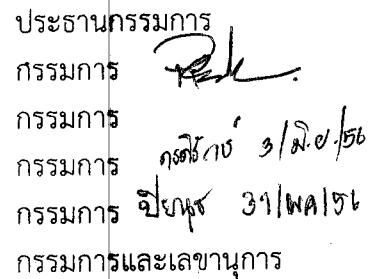 ประธานกรรมการ
กรรมการ
กรรมการ
กรรมการ 3/มิ.ย./56
กรรมการ ปิยนุช 31/พค/56
กรรมการและเลขานุการ